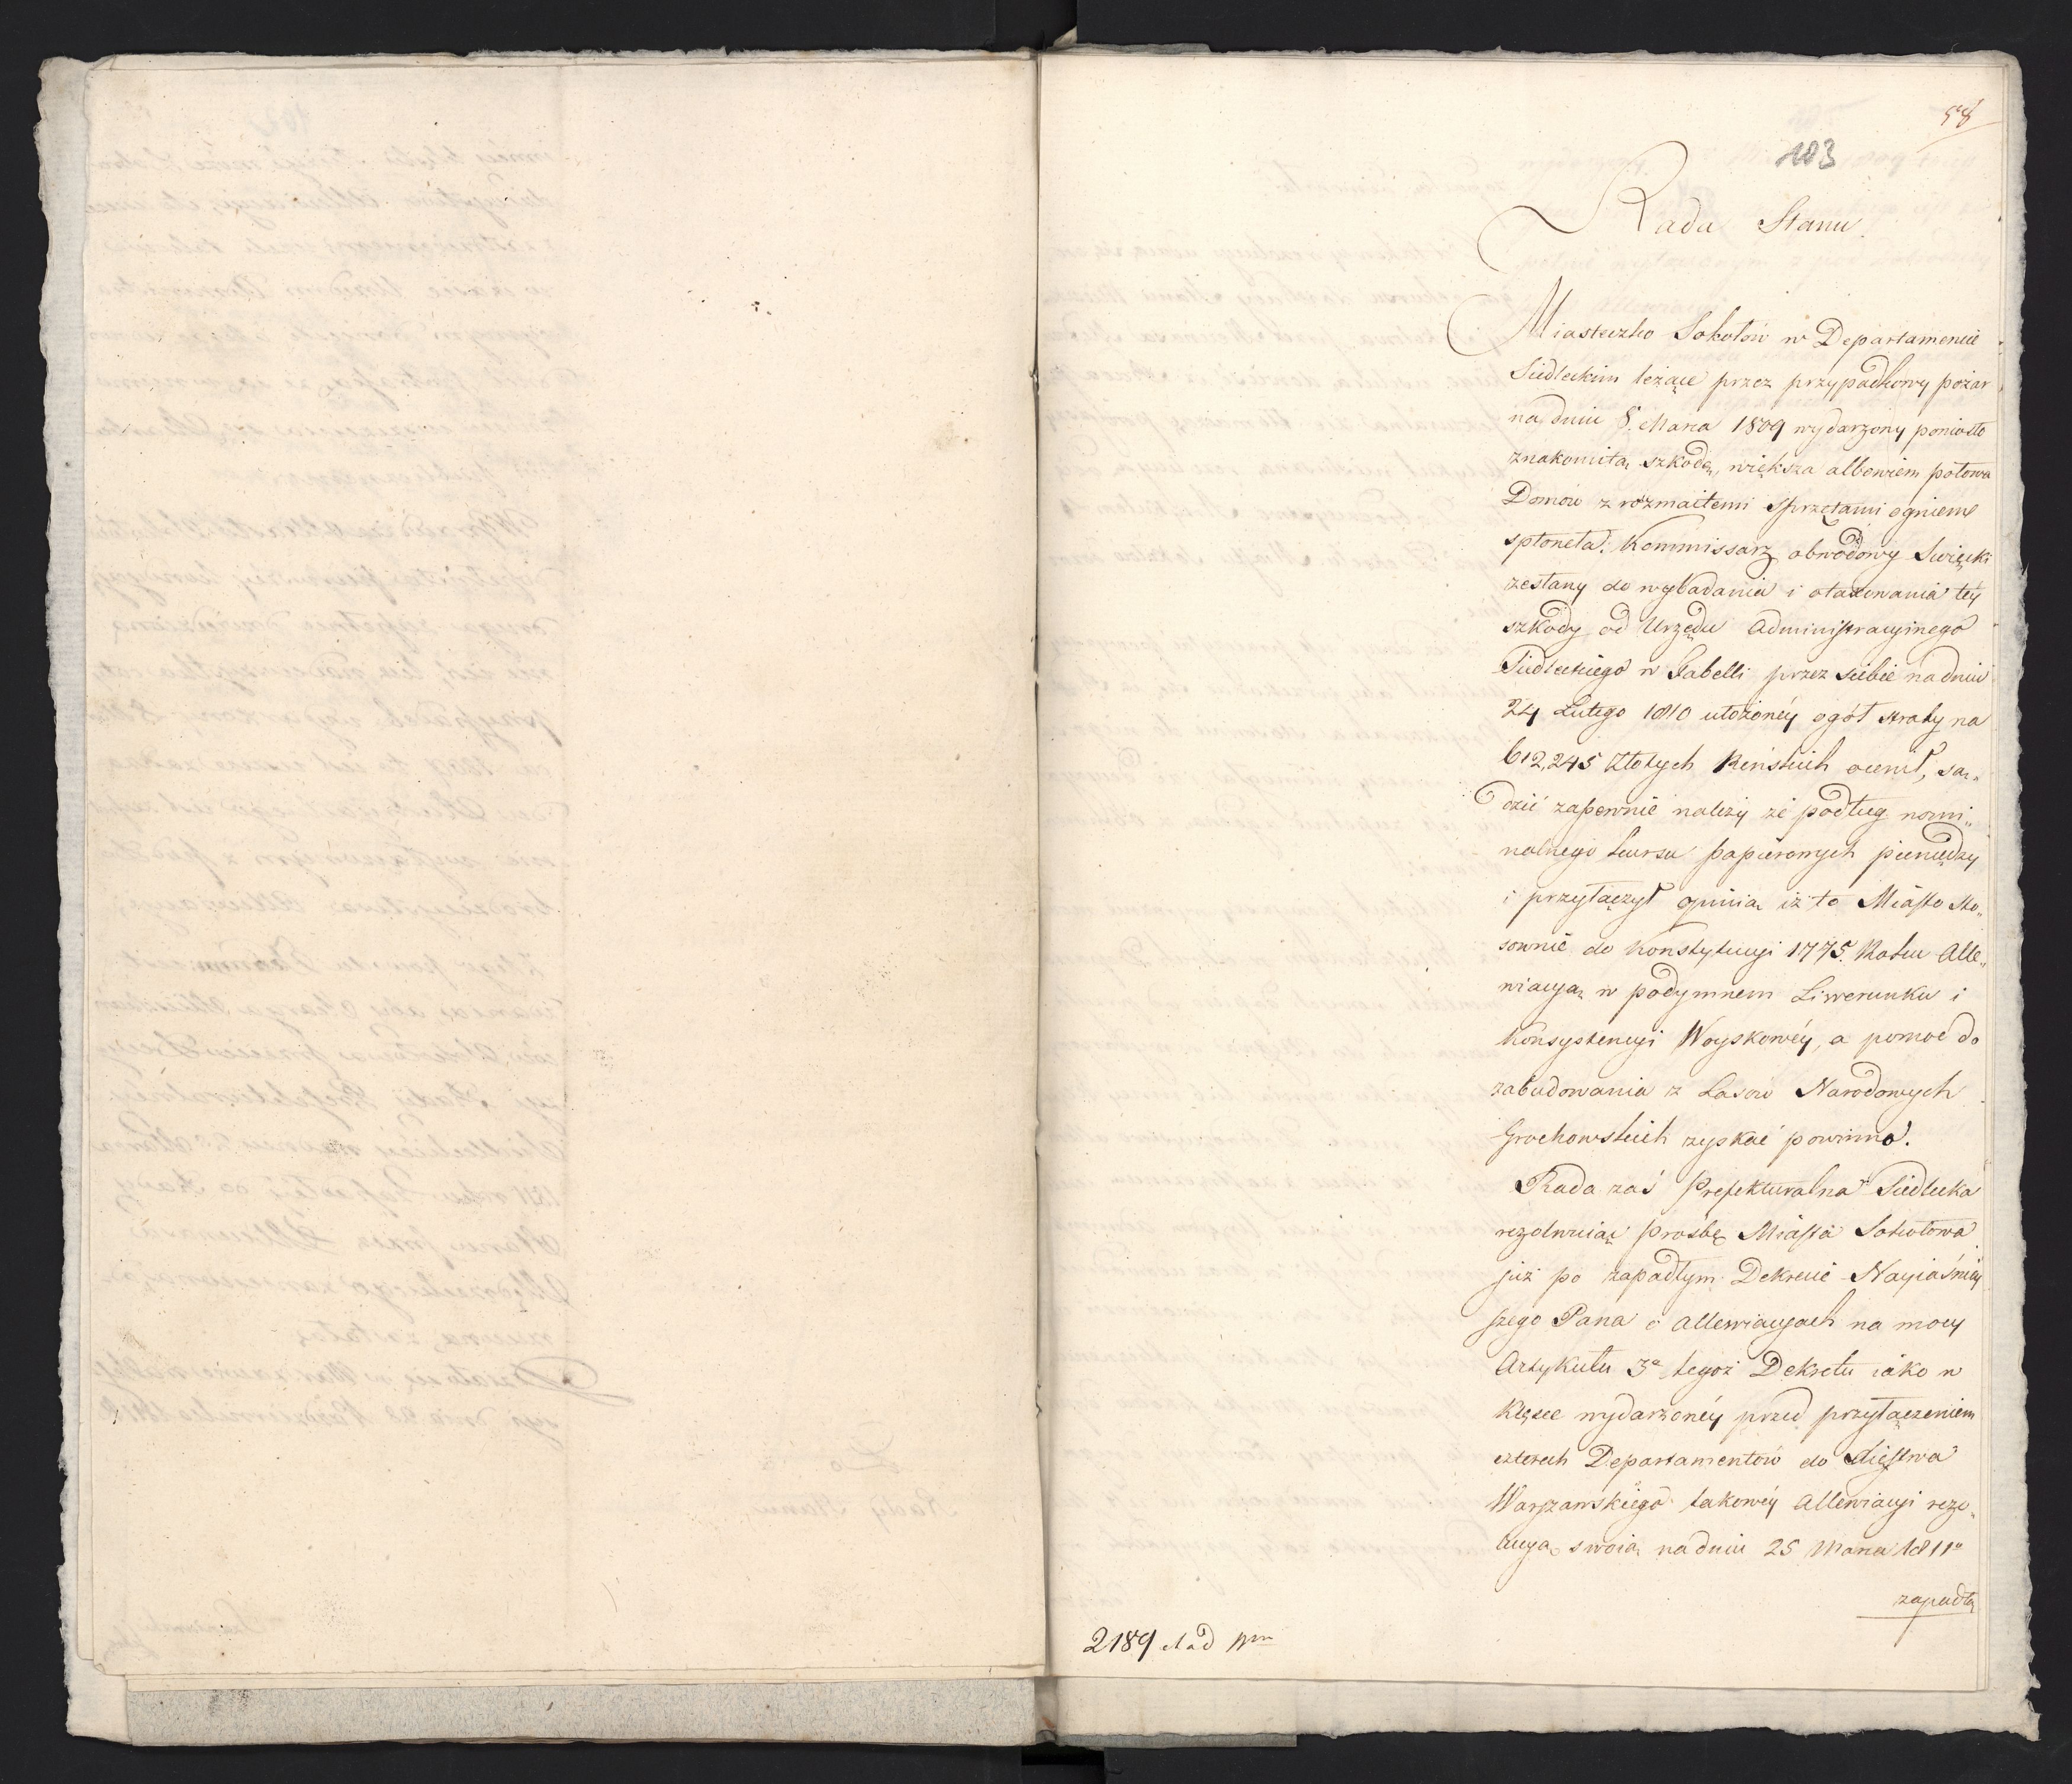 58
103
Rada Stanu.
Miasteczko Sokołow w Departamencie
Siedleckim leżące przez przypadkowy pożar
na dniu 8. Marca 1809 wydarzony poniosło
znakomitą szkodę, większa albowiem połowa
Domow z rozmaitemi sprzętami ogniem
spłoneła. Kommissarz obwodowy Swięcki
zesłany do wybadania i otaxowania tey
szkody od Urzędu Administracyinego
Siedleckiego w Tabelli przez siebie na dniu
24 Lutego 1810 ułożoney ogół straty na
612,245 Złotych Reńskich ocenił, są„
dzić zapewnie należy że podług nomi„
nalnego kursu papierowych pieniędzy
i przyłączył opinią iż to Miasto sto„
sownie do Konstytucyi 1775. Roku Alle„
wiacyą w podymnem Liwerunku i
Konsystencyi Woyskowéy, a pomoc do
zabudowania z Lasow Narodowych
Grochowskich zyskać powinno.
Rada zaś Prefekturalna Siedlecka
rezolwuiąc prośbę Miasta Sokołowa
już po zapadłym Dekrecie Nayiaśniey
szego Pana o allewiacyach na mocy
Artykułu 3º tegoż Dekretu iako w
Klęsce wydarzonéy przed przyłączeniem
czterech Departamentów do Xięstwa
Warszawskiego takowéy allewiacyi rezo„
lucyą swoią na dniu 25 Marca 1811º
zapadłą
2189 Nad